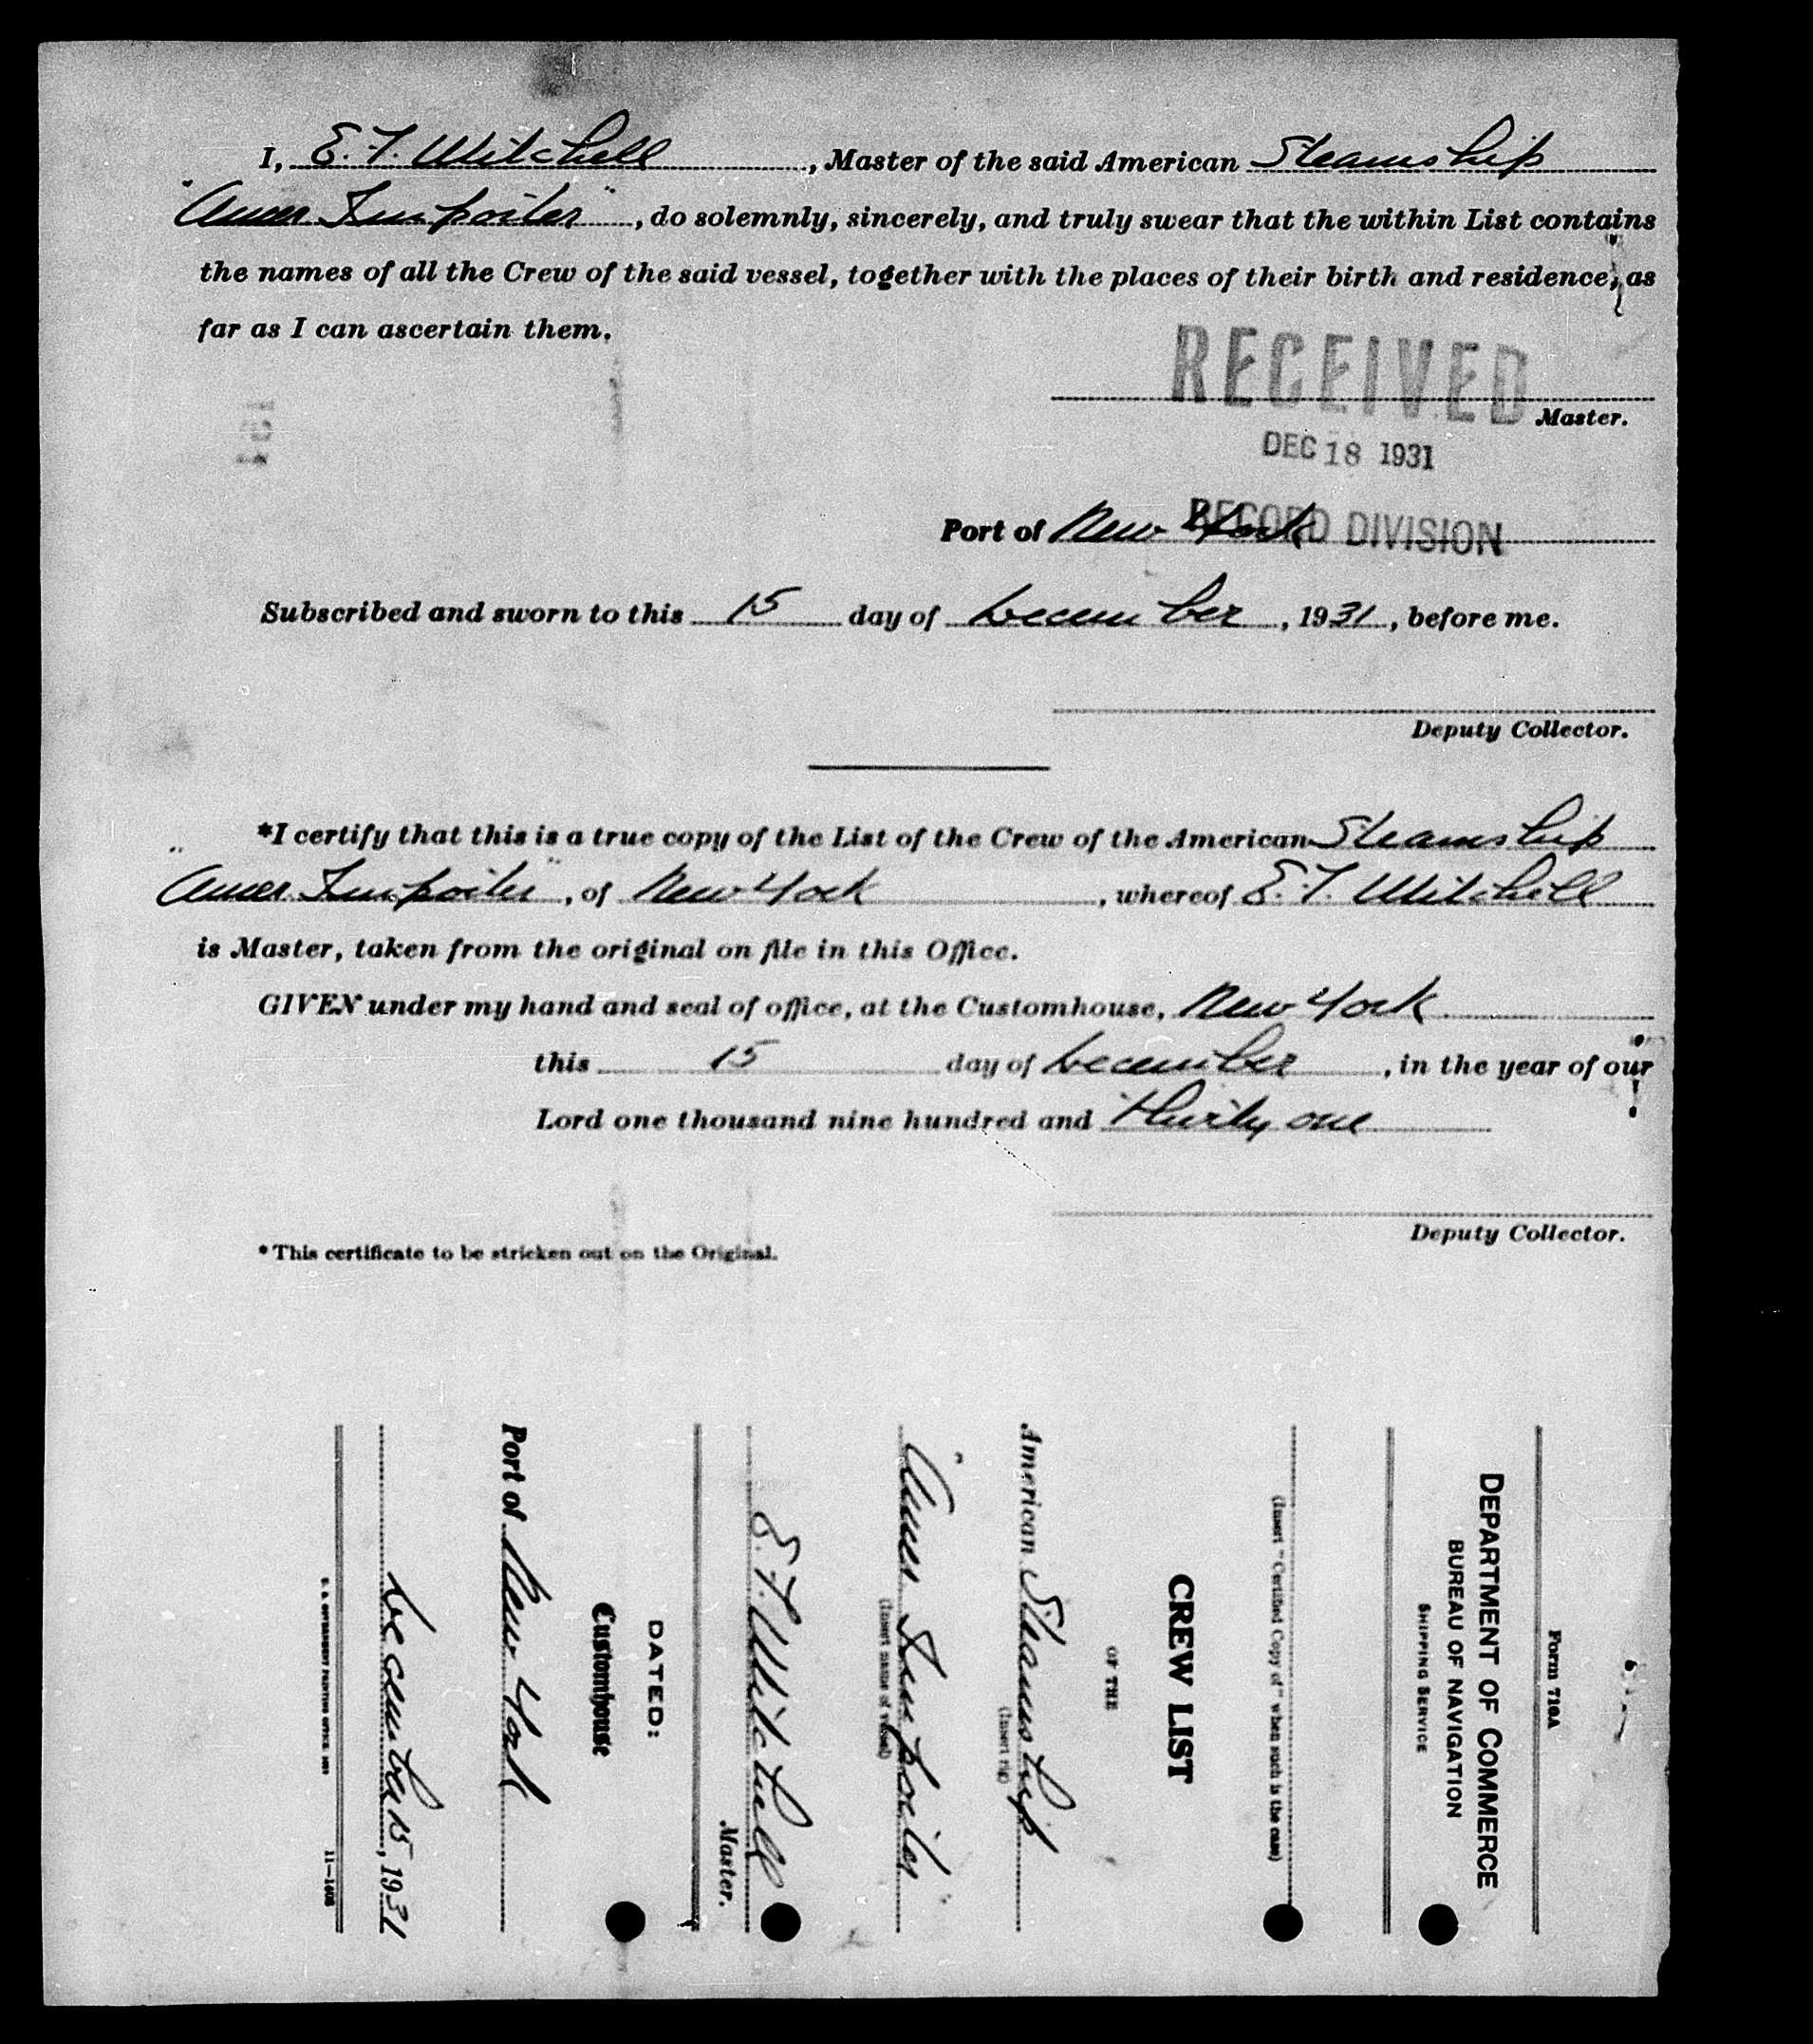 I, E. T. Mitchell, Master of the said American Steamship
"Amer Importer", do solemnly, sincerely, and truly swear that the within List contains
the names of all the Crew of the said vessel, together with the places of their birth and residence, as
far as I can ascertain them.
RECEIVED
Master.
DEC 18 1931
Port of New York
RECORD DIVISION
Subscribed and sworn to this 15 day of December, 1931, before me.
Deputy Collector.
*I certify that this is a true copy of the List of the Crew of the American Steamship
"Amer Importer", of New York, whereof E. T. Mitchell
is Master, taken from the original on file in this Office.
GIVEN under my hand and seal of office, at the Customhouse, New York
this 15 day of December, in the year of our
Lord one thousand nine hundred and Thirty one
Deputy Collector.
*This certificate to be stricken out on the Original.
Form 710A
DEPARTMENT OF COMMERCE
BUREAU OF NAVIGATION
SHIPPING SERVICE
(Insert "Certified Copy of" when such is the case)
CREW LIST
OF THE
American Steamship
(Insert rig)
"Amer Importer"
(Insert name of vessel)
E. T. Mitchell
Master.
DATED:
Customhouse
Port of New York
December 15, 1931
U. S. GOVERNMENT PRINTING OFFICE